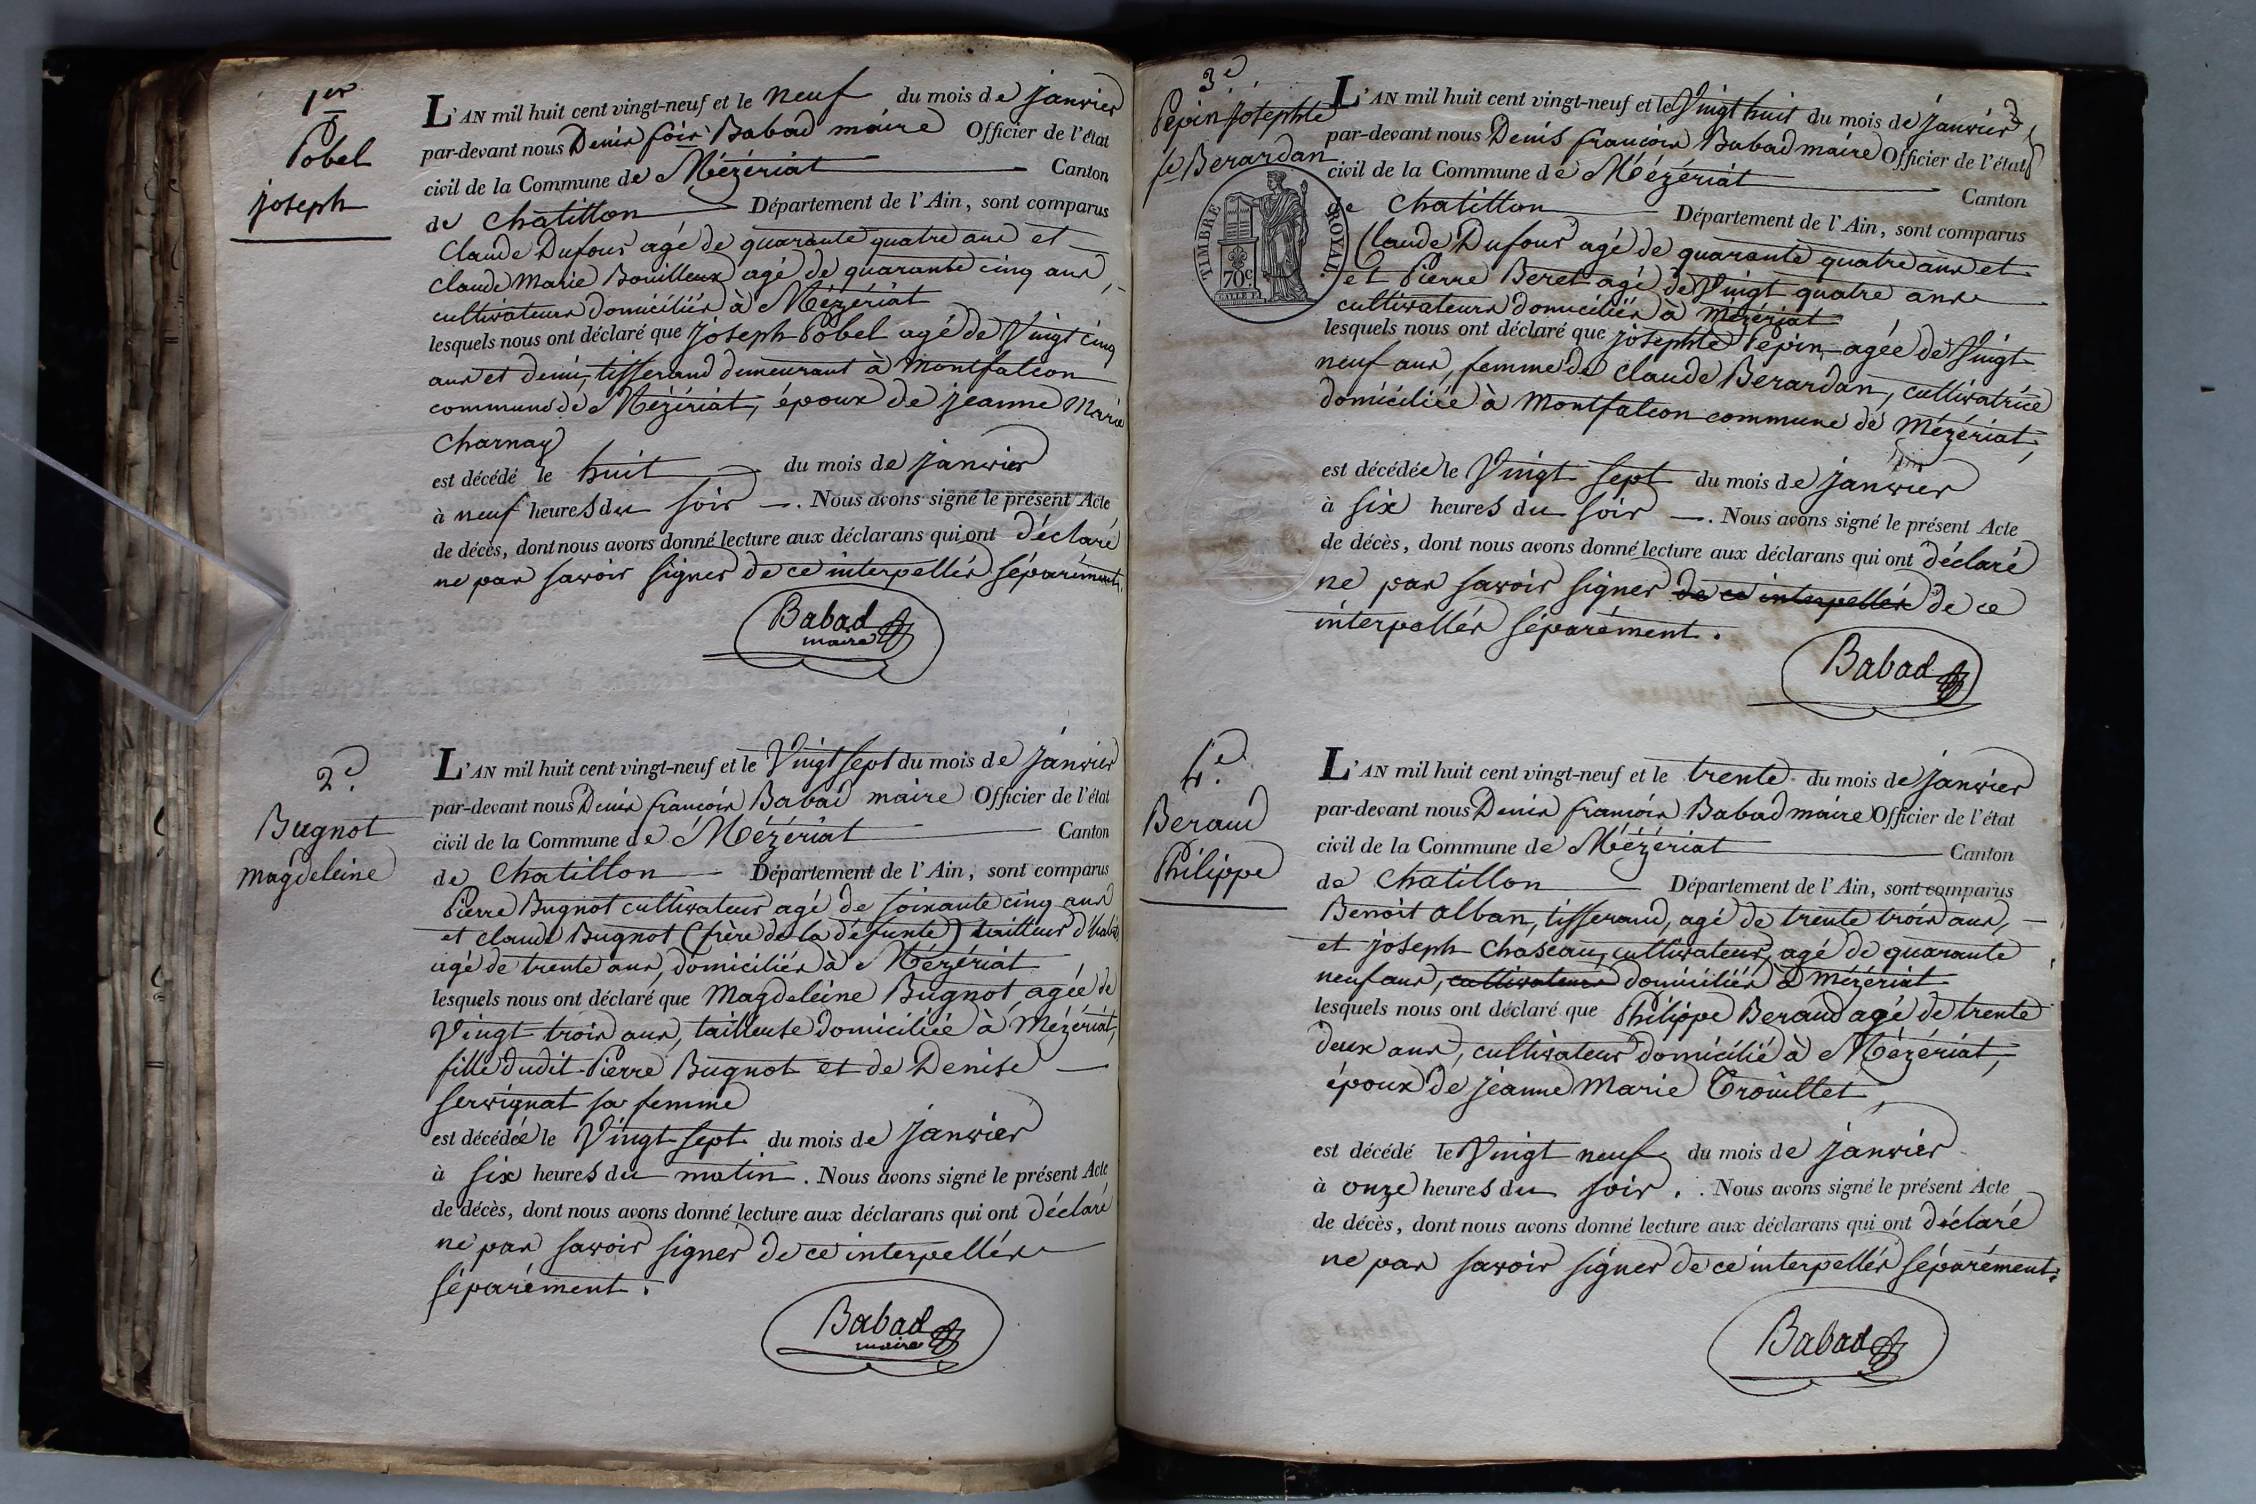 1er
Pobel
joseph
L'AN mil huit cent vingt-neuf et le neuf du mois de janvier
par-devant nous Denis fois Babad maire Officier de l'état
civil de la Commune de Mézériat Canton
de Chatillon Département de l'Ain, sont comparus
Claude Dufour agé de quarante quatre ans et
Claude Marie Bouilleux agé de quarante cinq ans,
cultivateurs domiciliés à Mézériat
lesquels nous ont déclaré que joseph Pobel agé de Vingt cinq
ans et demi, tisserand demeurant à Montfalcon
commune de Mézériat, époux de jeanne Marie
Charnay
est décédé le huit du mois de janvier
à neuf heures du soir. Nous avons signé le présent Acte
de décès, dont nous avons donné lecture aux déclarans qui ont déclaré
ne pas savoir signer de ce interpellés séparément.
Babad
maire
2e.
Bugnot
Magdeleine
L'AN mil huit cent vingt-neuf et le Vingt sept du mois de janvier
par-devant nous Denis françois Babad maire Officier de l'état
civil de la Commune de Mézériat Canton
de Chatillon Département de l'Ain, sont comparus
Pierre Bugnot cultivateur agé de soixante cinq ans
et claude Bugnot (frère de la défunte) tailleur d'habits
agé de trente ans, domiciliés à Mézériat
lesquels nous ont déclaré que Magdeleine Bugnot, agée de
Vingt trois ans, tailleuse domiciliée à Mézériat,
fille dudit Pierre Bugnot et de Denise
servignat sa femme
est décédée le Vingt sept du mois de janvier
à six heures du matin. Nous avons signé le présent Acte
de décès, dont nous avons donné lecture aux déclarans qui ont déclaré
ne pas savoir signer de ce interpellés
séparément.
Babad
maire
3e.
Pepin josephte
fe Berardan
TIMBRE ROYAL
70c
L'AN mil huit cent vingt-neuf et le Vingt huit du mois de janvier
par-devant nous Denis françois Babad maire Officier de l'état
civil de la Commune de Mézériat Canton
de Chatillon Département de l'Ain, sont comparus
Claude Dufour agé de quarante quatre ans et
et Pierre Beret agé de Vingt quatre ans
cultivateurs domiciliés à Mézériat
lesquels nous ont déclaré que josephte Pepin, agée de Vingt
neuf ans, femme de Claude Berardan, cultivatrice
domiciliée à Montfalcon commune de Mézériat,
est décédée le Vingt sept du mois de janvier
à six heures du soir. Nous avons signé le présent Acte
de décès, dont nous avons donné lecture aux déclarans qui ont déclaré
ne pas savoir signer de ce interpellés de ce
interpellés séparément.
Babad
4e.
Beraud
Philippe
L'AN mil huit cent vingt-neuf et le trente du mois de janvier
par-devant nous Denis françois Babad maire Officier de l'état
civil de la Commune de Mézériat Canton
de Chatillon Département de l'Ain, sont comparus
Benoit Alban, tisserand, agé de trente trois ans,
et joseph Chaseau, cultivateur, agé de quarante
neuf ans, cultivateurs domiciliés à Mézériat
lesquels nous ont déclaré que Philippe Beraud agé de trente
deux ans, cultivateur domicilié à Mézériat,
époux de jeanne Marie Trouillet,
est décédé le Vingt neuf du mois de janvier
à onze heures du soir. Nous avons signé le présent Acte
de décès, dont nous avons donné lecture aux déclarans qui ont déclaré
ne pas savoir signer de ce interpellés séparément.
Babad